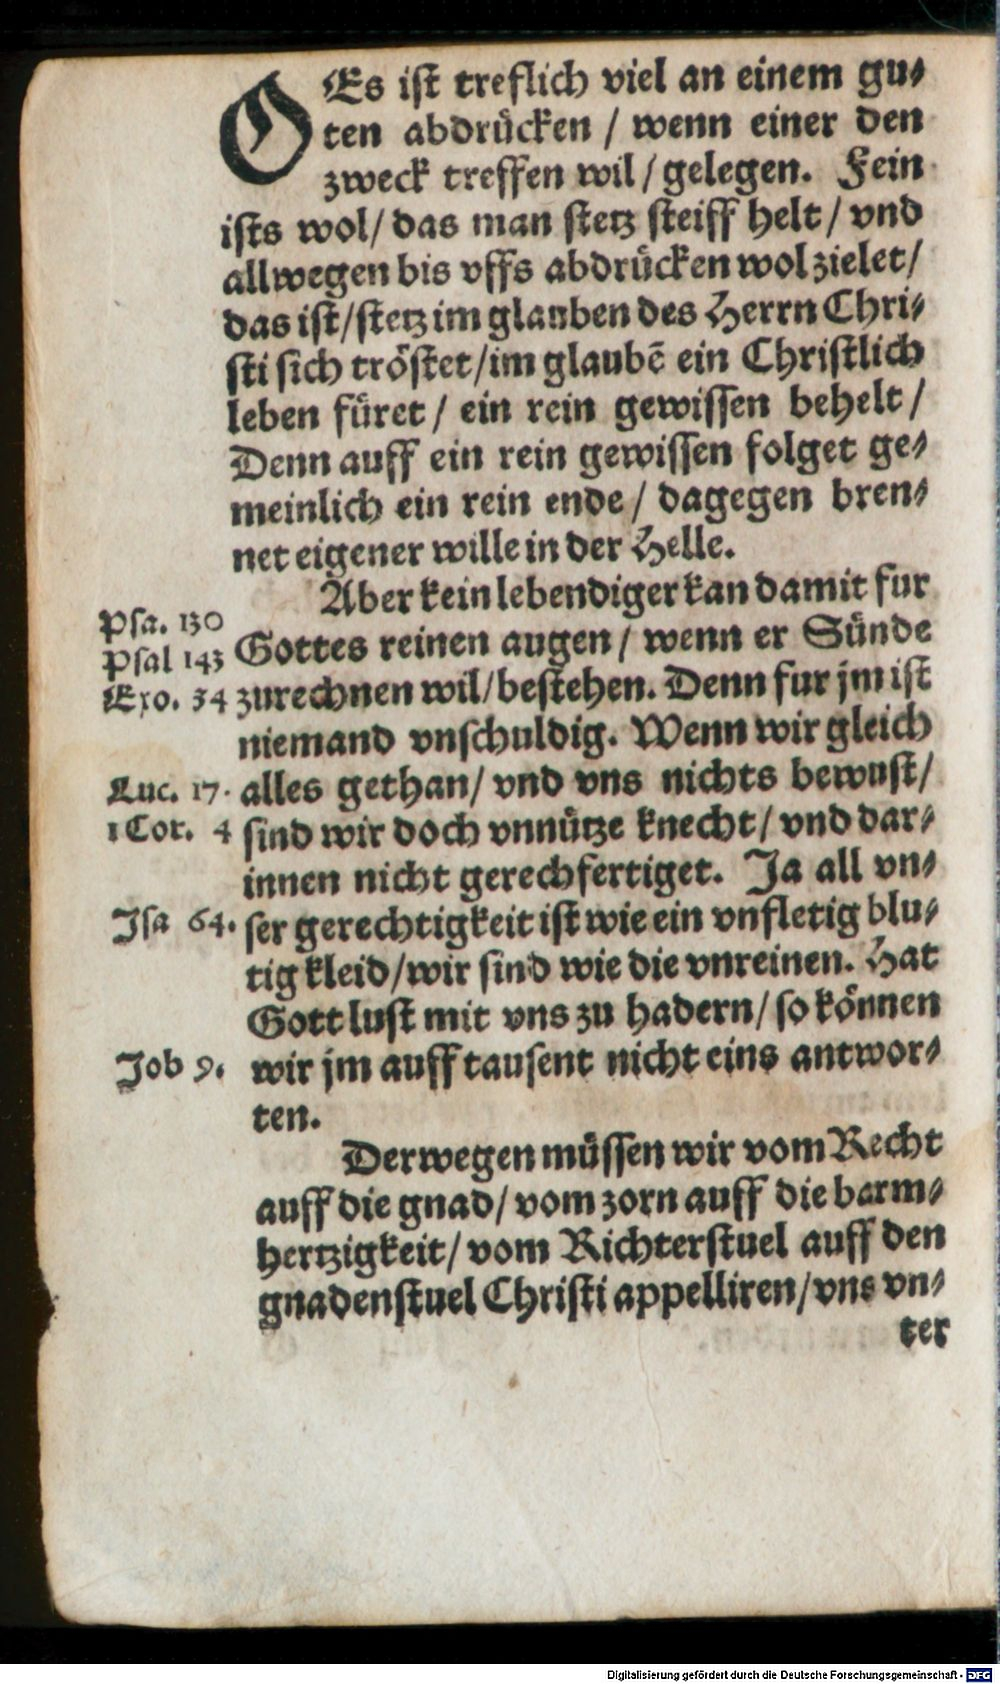 OEs ist treflich viel an einem gu-
ten abdrücken / wenn einer den
zweck treffen wil / gelegen. Fein
ists wol / das man stetz steiff helt / vnd
allwegen bis vffs abdrücken wol zielet /
das ist / stetz im glauben des Herrn Chri-
sti sich tröstet / im glaubē ein Christlich
leben füret / ein rein gewissen behelt /
Denn auff ein rein gewissen folget ge-
meinlich ein rein ende / dagegen bren-
net eigener wille in der Helle.
Aber kein lebendiger kan damit fur
Psa. 130
Psal 143 Gottes reinen augen / wenn er Sünde
Exo. 34 zurechnen wil / bestehen. Denn fur jm ist
niemand vnschuldig. Wenn wir gleich
Luc. 17. alles gethan / vnd vns nichts bewust /
1 Cor. 4 sind wir doch vnnütze knecht / vnd dar-
innen nicht gerechfertiget. Ja all vn-
Isa 64. ser gerechtigkeit ist wie ein vnfletig blu-
tig kleid / wir sind wie die vnreinen. Hat
Gott lust mit vns zu hadern / so können
Job 9. wir jm auff tausent nicht eins antwor-
ten.
Derwegen müssen wir vom Recht
auff die gnad / vom zorn auff die barm-
hertzigkeit / vom Richterstuel auff den
gnadenstuel Christi appelliren / vns vn-
ter
Digitalisierung gefördert durch die Deutsche Forschungsgemeinschaft - DFG